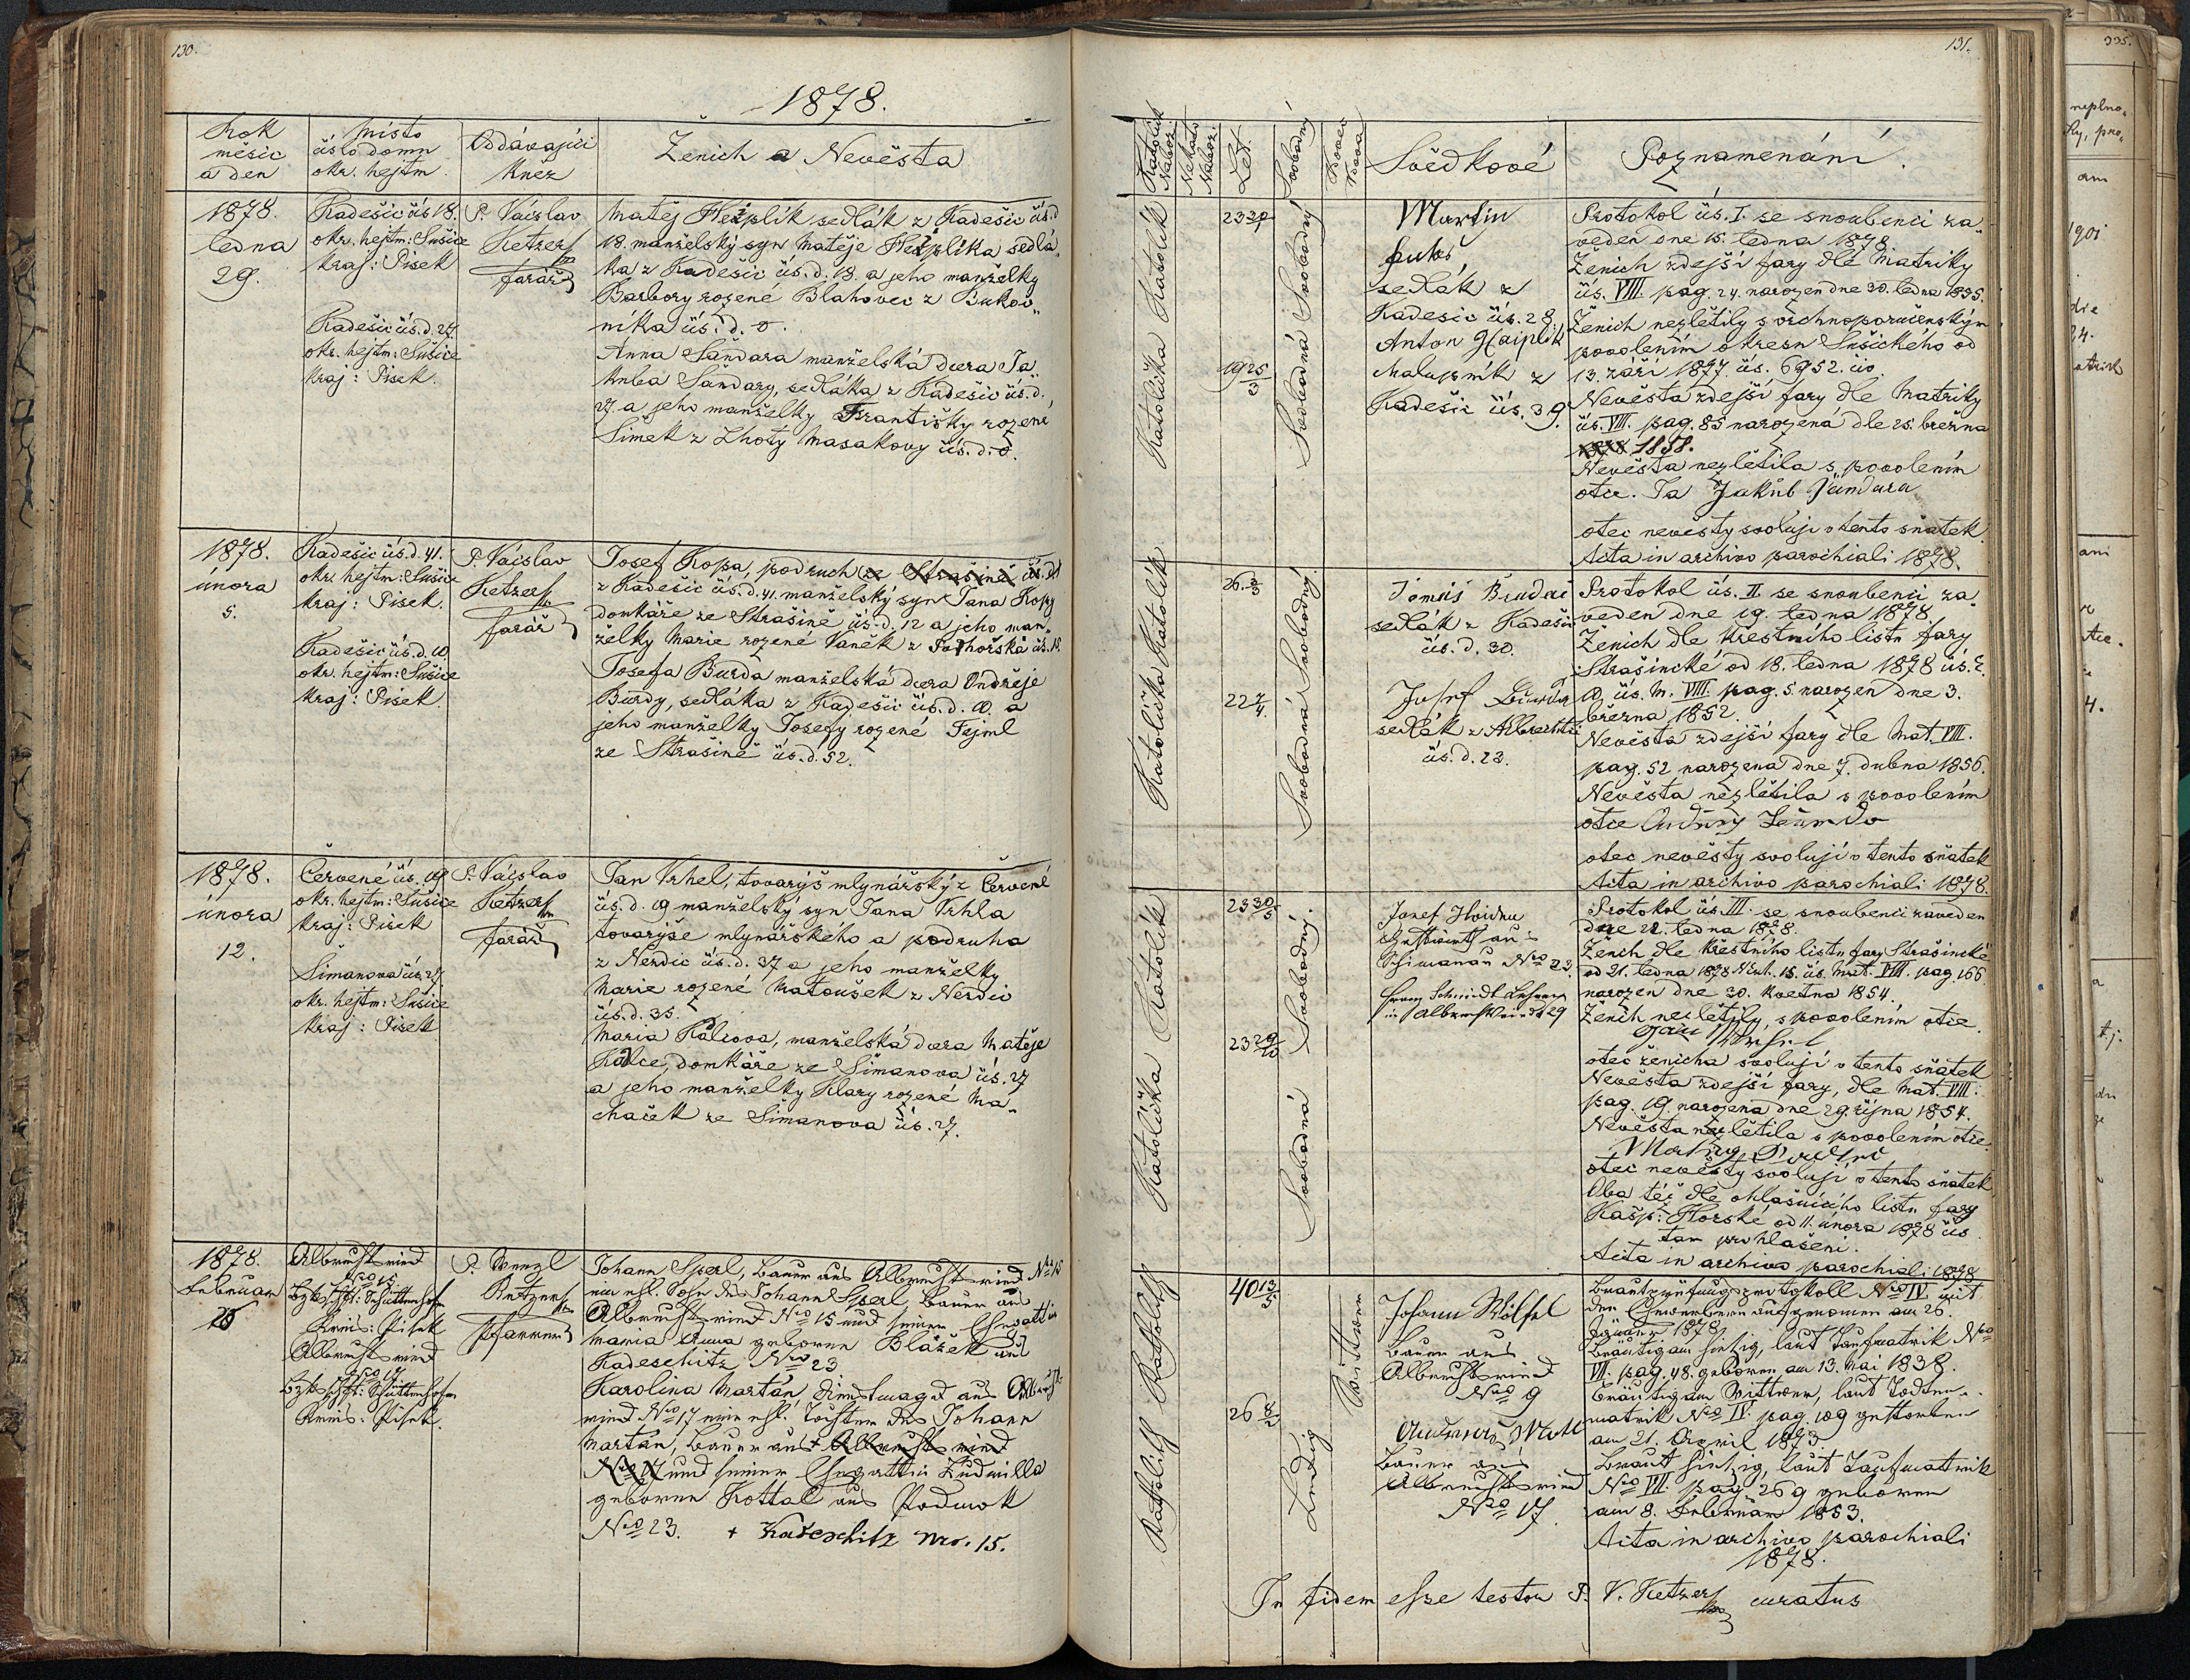 130.
1878.
Rok
měsíc
a den
Místo
číslo domu
okr. hejtm.
Oddávající
Kněz
Ženich a Nevěsta
1878.
ledna
29.
Kadešic čís 18.
okr. hejtm: Sušice
Kraj: Písek
Kadešic čís. d. 27
okr. hejtm: Sušice
Kraj: Písek.
P. Václav
Ketzer
farář
Matěj Hejplík sedlák z Kadešic čís. d
18. manželský syn Matěje Hejplíka sedlá„
ka z Kadešic čís. d. 18. a jeho manželky
Barbory rozené Blahovec z Bukov„
níka čís. d. 8.
Anna Šandara manželská dcera Ja„
kuba Šandary, sedláka z Kadešic čís. d.
27 a jeho manželky Františky rozené
Šimek z Lhoty Masakovy čís. d. 8.
1878.
února
5.
Kadešic čís. d. 41.
okr. hejtm: Sušice
Kraj: Písek.
Kadešic čís. d. 10
okr. hejtm: Sušice
Kraj: Písek.
P. Václav
Ketzer
farář
Josef Kopa, podruh ze Strašině čís. d
z Kadešic čís. d. 41. manželský syn Jana Kopy
domkáře ze Strašině čís. d. 12 a jeho man„
želky Marie rozené Vaněk z
Josefa Burda manželská dcera Ondřeje
Burdy, sedláka z Kadešic čís. d. 10. a
jeho manželky Josefy rozené Fejml
ze Strašině čís. d. 52.
1878.
února
12.
Červené čís. 19
okr. hejtm: Sušice
Kraj: Písek
Šimanova čís. 27
okr. hejtm: Sušice
Kraj: Písek
P. Václav
Ketzer
farář
Jan Vrhel, tovaryš mlynářský z Červené
čís. d. 19 manželský syn Jana Vrhla
tovaryše mlynářského a podruha
z Nerdic čís. d. 37 a jeho manželky
Marie rozené Matoušek z Nerdic
čís. d. 35.
Maria Kalcova, manželská dcera Matěje
Kalce, domkáře ze Šimanova čís. 27
a jeho manželky Klary rozené Ma„
chaček ze Šimanova čís. 27.
1878.
Februar
Albrechtsried
Nro 15
Bzkschft: Schüttenhofen
Kreis: Pisek
Albrechtsried
Nro 17.
Bzkschft: Schüttenhofen
Kreis: Pisek.
P. Wenzl
Ketzer
Pfarrer
Johann Sperl, Bauer aus Albrechtsried Nro 15
ein ehl. Sohn des Johann Sperl, Bauer aus
Albrechtsried Nro 15 und seiner Ehegattin
Maria Anna geborene Blažek aus
Kadeschitz Nro 23
Karolina Martán, Dienstmagd aus Albrechts
ried Nro 17 eine ehl. Tochter des Johann
Martán, Bauer aus + Albrechtsried
Nro 17 und seiner Ehegattin Ludmilla
geborene Kottal aus Podmok
Nro 23. + Kadeschitz Nro. 15.
131.
Katolick
Nábož.
Nekato
Nábož.
Let.
Svobodný
Vdovec
Vdova
Svědkové
Poznamenání.
Katolička Katolík
23 30/1
19 25/3
Svobodná Svobodný
Martin
sedlák z
Kadešic čís. 28.
Anton Haiplik
chalupník z
Kadešic čís. 39.
Protokol čís. I. se snoubenci za„
veden dne 15. ledna 1878.
Ženich zdejší fary dle Matriky
čís. VIII. pag. 24. narozen dne 30. ledna 1855.
Ženich nezletilý s vrchnoporučenským
povolením okresu Sušického od
13. září 1877. čís. 6952. civ.
Nevěsta zdejší fary dle Matriky
čís. VIII. pag. 85 narozená dle 25. března
1858.
Nevěsta nezletila s povolením
otce. Ja Jakub Šandara
otec nevěsty svoluji v tento sňatek
Acta in archivo parochiali 1878.
Katolička Katolík
26. 3/3
22 7/4.
Svobodná Svobodný.
Tomáš
sedlák z Kadešic
čís. d. 30.
Josef
sedlák z Albrechtic
čís. d. 23.
Protokol čís. II. se snoubenci za„
veden dne 19. ledna 1878.
Ženich dle křestního listu fary
Strašincké od 18. ledna 1878 čís. E.
10. čís. M. VIII. pag. 5. narozen dne 3.
března 1852.
Nevěsta zdejší fary dle Mat. VIII.
pag. 52 narozena dne 7. dubna 1856.
Nevěsta nezletila s povolením
otce
otec nevěsty svolují v tento sňatek
Acta in archivo parochiali 1878.
Katolička Katolík
23 30/5
23 29/10
Svobodná Svobodný.
Josef
aus
Schimanau Nro 23.
Franz Schmidt Lehrer
in Albrechtsried 29
Protokol čís. III. se snoubenci zaveden
dne 22. ledna 1878.
Ženich dle Křestního listu fary Strašincké
od 21. ledna 1878 Nexh. 15. čís. Mat. VIII. pag. 166
narozen dne 30. května 1854.
Ženich nezletily, s povolením otce.
Jan Wrhel
otec ženicha svolují v tento sňatek
Nevěsta zdejší fary, dle Mat. VIII:
pag. 19. narozena dne 29. října 1854.
Nevěsta nezletila s povolením otce.
otec nevěsty svolují v tento sňatek
Oba též dle ohlašúcího listu fary
Kašp: Horské od 11. února 1878 čís
tam prohlašeni.
Acta in archivo parochiali 1878
Katholisch Katholisch
40 13/5
26 8/2
Ledig
Wittwer
Johann Wölfel
Bauer aus
Albrechtsried
Nro 9
Bauer aus
Albrechtsried
Nro 17.
Brautprüfungsprotokoll Nro IV. mit
den Ehewerbern aufgenomen am 26.
Jänner 1878
Bräutigam hiesig, laut Taufmatrik Nro
VII. pag. 48. geboren am 13. Mai 1838.
Bräutigam Wittwer, laut Todten„
matrik Nro IV. pag. 109 gestorben
am 21. April 1873
Braut hiesig, laut Taufmatrik
Nro VII. pag. 269 geboren
am 8. Februar 1853.
Acta in archivo parochiali
1878.
In fidem esse testor P. V. Ketzer curatus
335.